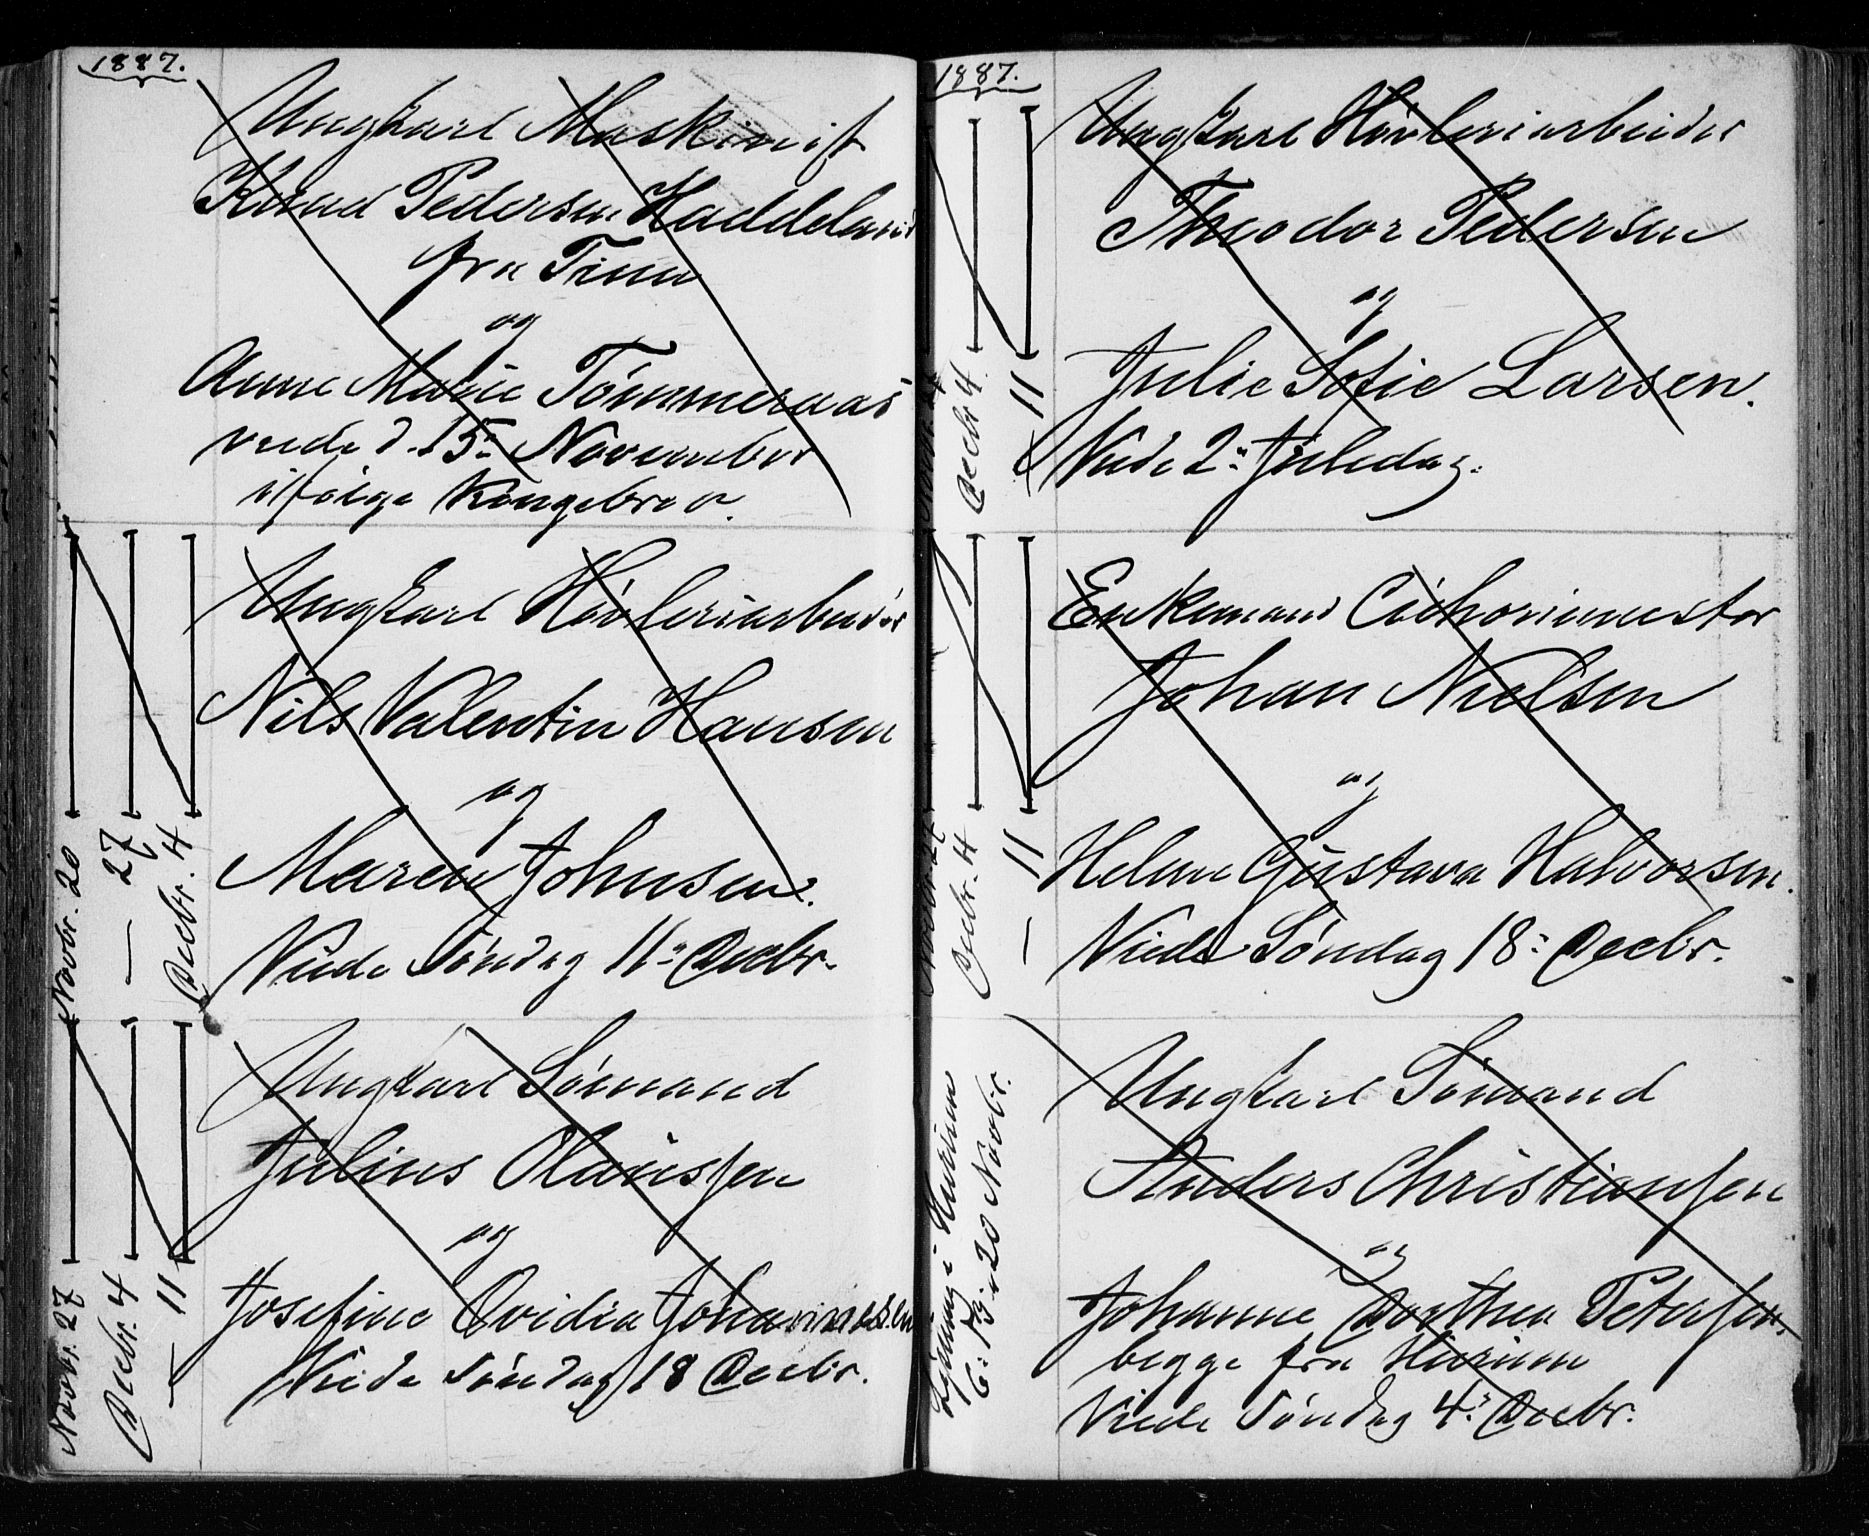 1887.
Ungkarl Maskinist
Knud Pedersen Haddeland
fra Tinn
og
Anne Marie Tømmeraas
viede d. 15: November
ifølge Kongebrev.
Novbr. 20
— 27
Decbr. 4
Ungkarl Høvleriarbeider
Nils Valentin Hansen
og
Maren Johnsen.
Viede Søndag 11: Decbr.
Novbr. 27
Decbr. 4
— 11
Ungkarl Sømand
Julius Olaussen
og
Josefine Ovidia Johannessen
Viede Søndag 18 Decbr.
1887.
Decbr. 4
— 11
Ungkarl Høvleriarbeider
Theodor Pedersen
og
Julie Sofie Larsen.
Viede 2: Juledag.
Novbr. 27
Decbr. 4
— 11
Enkemand Cichorimester
Johan Nielsen
og
Helene Gustava Halvorsen.
Viede Søndag 18: Decbr.
Lysning i Hurum
6: 13: 20 Novbr.
Ungkarl Sømand
Anders Christiansen
og
Johanne Dorthea Petersen.
begge fra Hurum
Viede Søndag 4: Decbr.